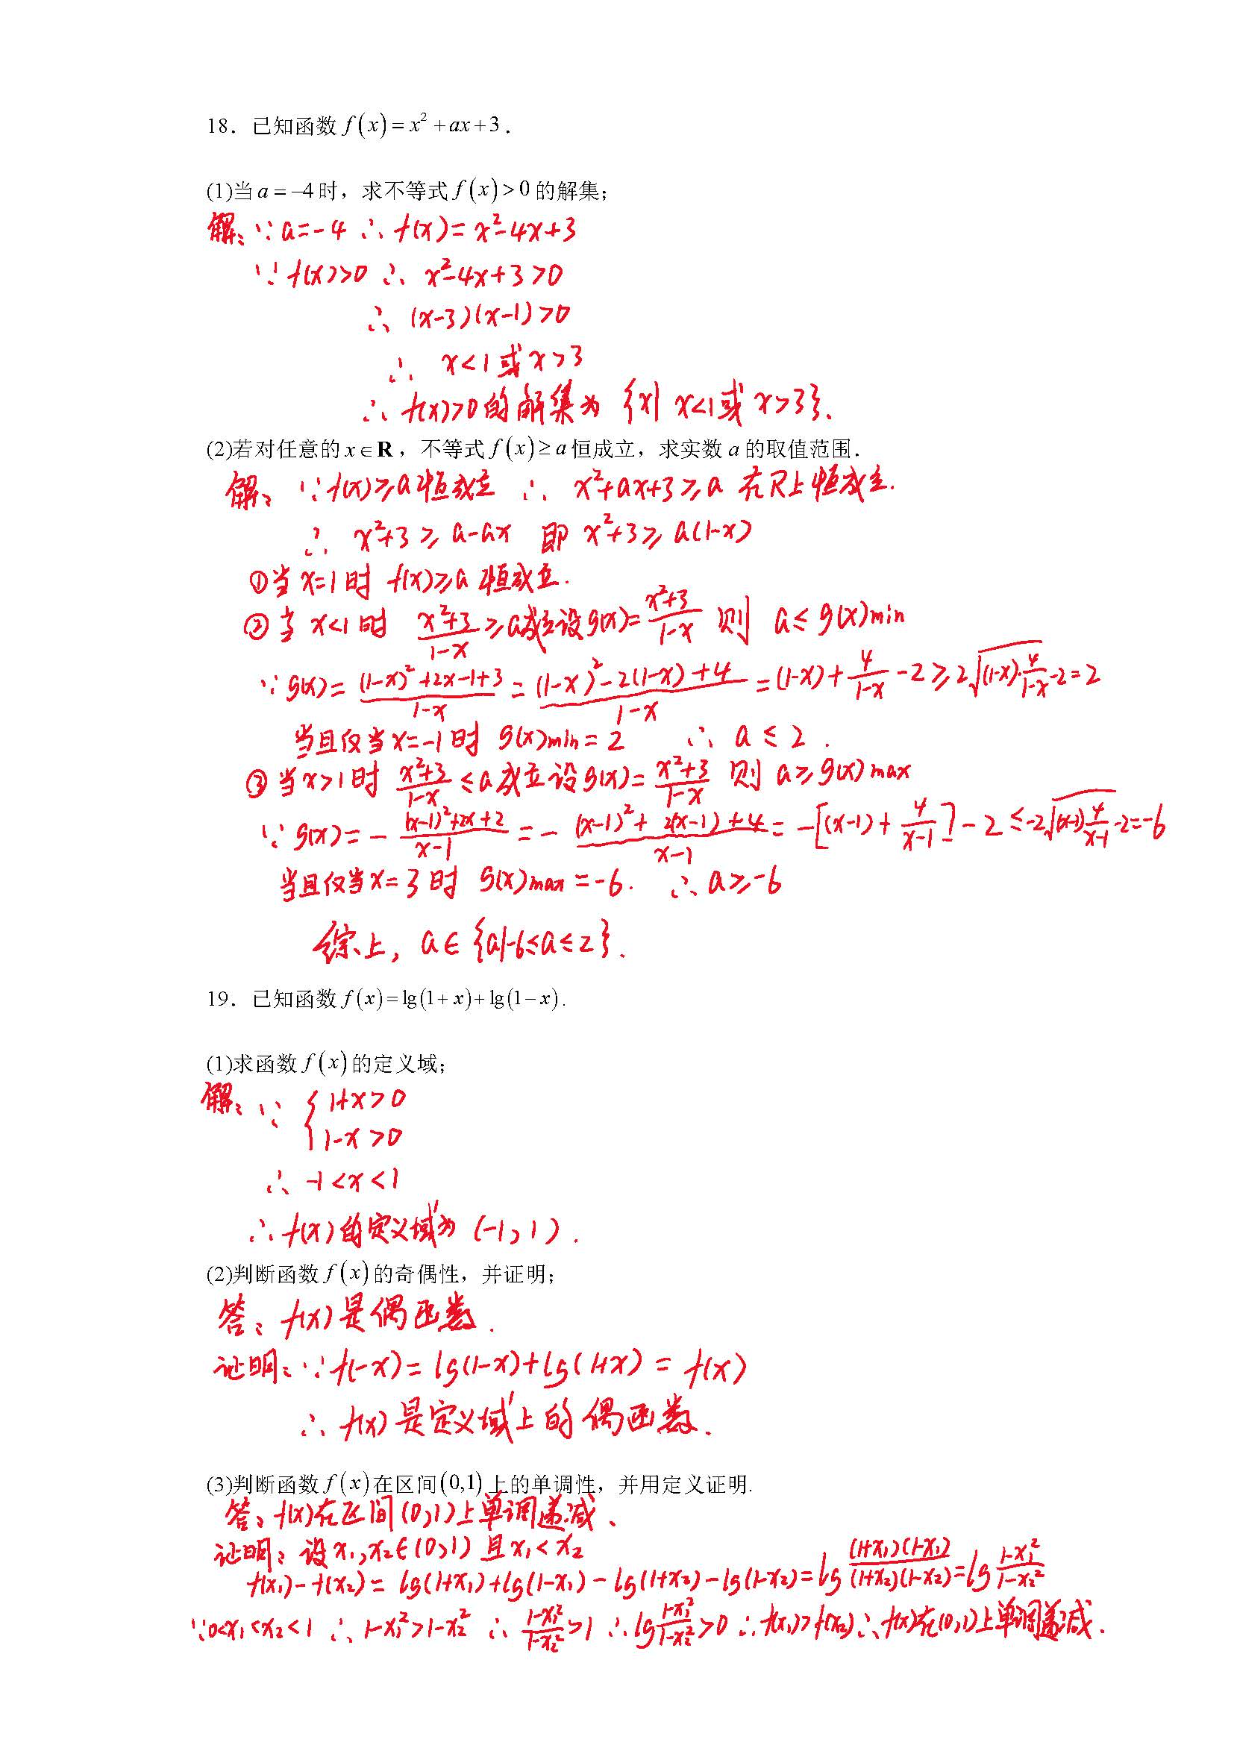 18. 已知函数 f(x)=x²+ax+3.
(1)当 a=-4 时，求不等式 f(x)>0 的解集；
解：∵a=-4 ∴f(x)=x²-4x+3
∵f(x)>0 ∴ x²-4x+3>0
∴ (x-3)(x-1)>0
∴ x<1或x>3
∴f(x)>0的解集为 {x| x<1或x>3}.
(2)若对任意的 x∈R，不等式 f(x)≥a 恒成立，求实数 a 的取值范围.
解：∵f(x)≥a恒成立 ∴ x²+ax+3≥a 在R上恒成立.
∴ x²+3≥a-ax 即 x²+3≥a(1-x)
①当x=1时 f(x)≥a 恒成立.
②当 x<1时 (x²+3)/(1-x) ≥a成立设g(x)=(x²+3)/(1-x) 则 a≤g(x)min
∵g(x)=((1-x)²+2x-1+3)/(1-x)=((1-x)²-2(1-x)+4)/(1-x)=(1-x)+4/(1-x)-2≥2√((1-x)·4/(1-x))-2=2
当且仅当x=-1时 g(x)min=2 ∴ a≤2.
③当x>1时 (x²+3)/(1-x) ≤a成立设g(x)=(x²+3)/(1-x) 则 a≥g(x)max
∵g(x)=-((x-1)²+2x+2)/(x-1)=-((x-1)²+2(x-1)+4)/(x-1)=-[(x-1)+4/(x-1)]-2≤-2√((x-1)·4/(x-1))-2=-6
当且仅当x=3时 g(x)max=-6. ∴a≥-6
综上，a∈{a|-6≤a≤2}.
19. 已知函数 f(x)=lg(1+x)+lg(1-x).
(1)求函数 f(x) 的定义域；
解：∵ {1+x>0
1-x>0
∴ -1<x<1
∴f(x)的定义域为 (-1,1).
(2)判断函数 f(x) 的奇偶性，并证明；
答：f(x)是偶函数.
证明：∵f(-x)=lg(1-x)+lg(1+x)=f(x)
∴f(x)是定义域上的偶函数.
(3)判断函数 f(x) 在区间(0,1)上的单调性，并用定义证明.
答：f(x)在区间(0,1)上单调递减.
证明：设x₁,x₂∈(0,1) 且x₁<x₂
f(x₁)-f(x₂)=lg(1+x₁)+lg(1-x₁)-lg(1+x₂)-lg(1-x₂)=lg((1+x₁)(1-x₁))/((1+x₂)(1-x₂))=lg(1-x₁²)/(1-x₂²)
∵0<x₁<x₂<1 ∴1-x₁²>1-x₂² ∴(1-x₁²)/(1-x₂²)>1 ∴lg(1-x₁²)/(1-x₂²)>0 ∴f(x₁)>f(x₂)∴f(x)在(0,1)上单调递减.